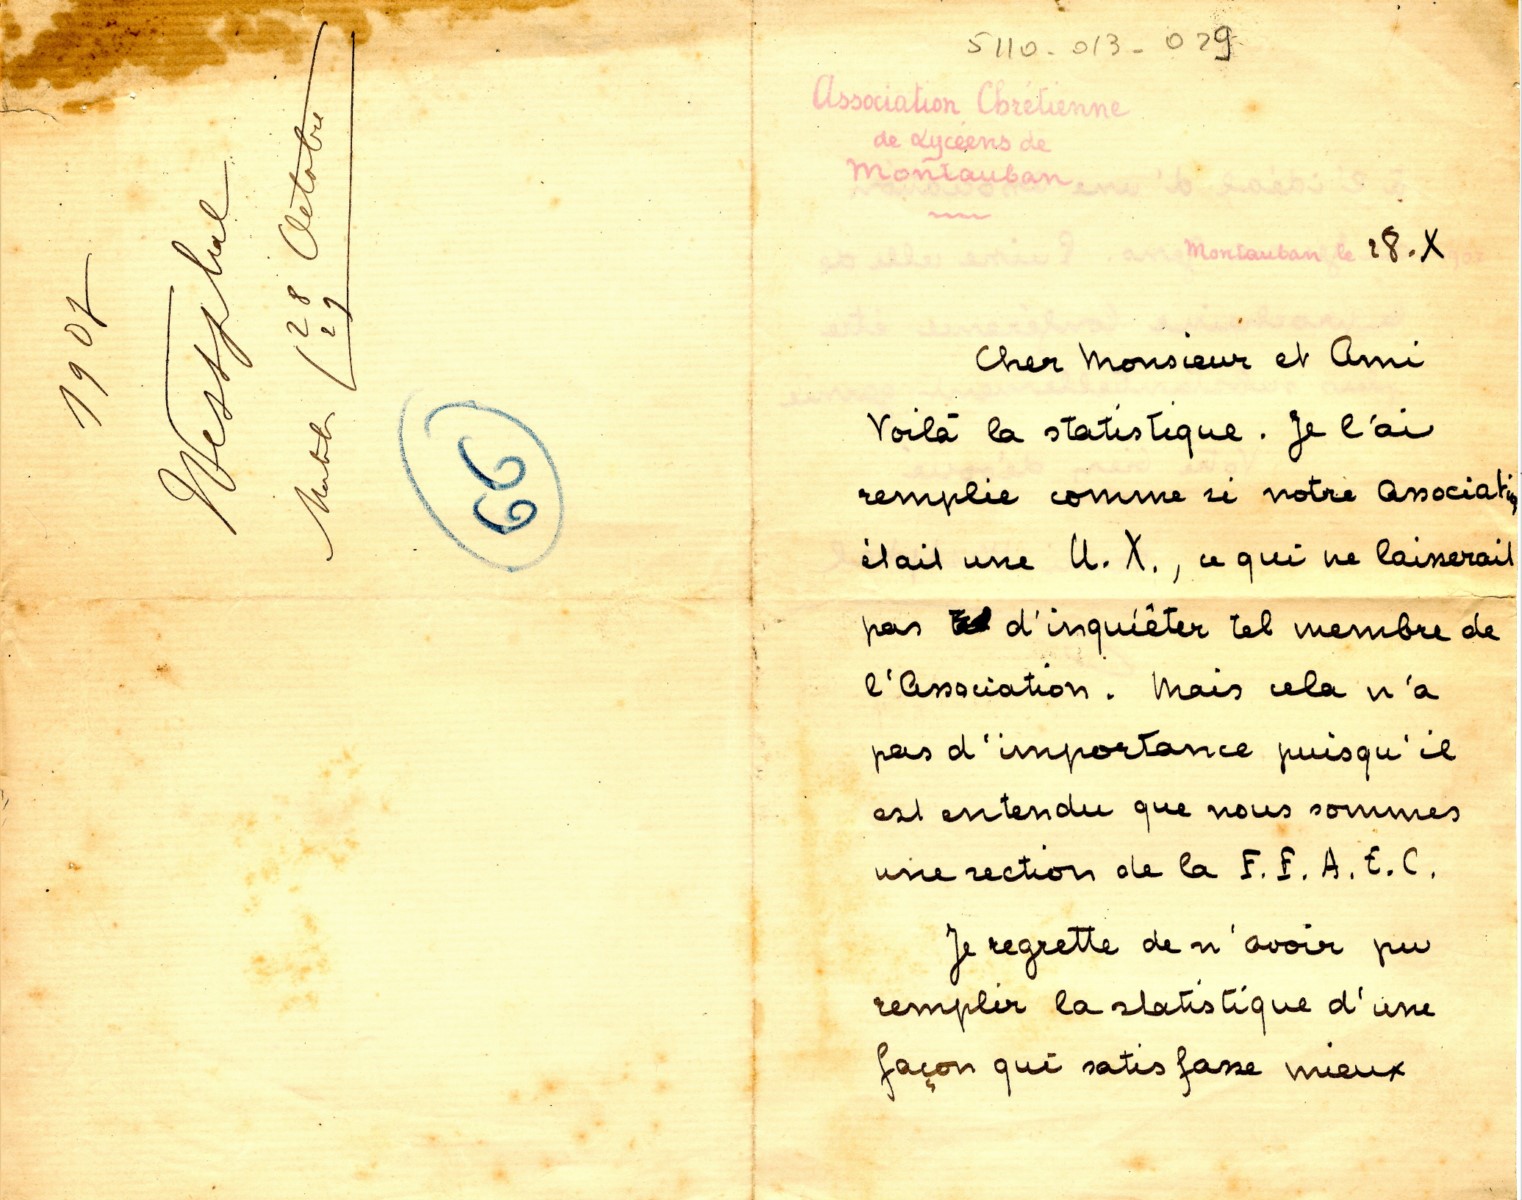 1907
Westphal
28 Octobre
29
69
5110-013-029
Association Chrétienne
de Lycéens de
Montauban
Montauban le 28.X
Cher Monsieur et Ami
Voilà la statistique. Je l'ai
remplie comme si notre Association
était une U.X., ce qui ne laisserait
pas d'inquiéter tel membre de
l'Association. Mais cela n'a
pas d'importance puisqu'il
est entendu que nous sommes
une section de la F.F.A.E.C.
Je regrette de n'avoir pu
remplir la statistique d'une
façon qui satisfasse mieux